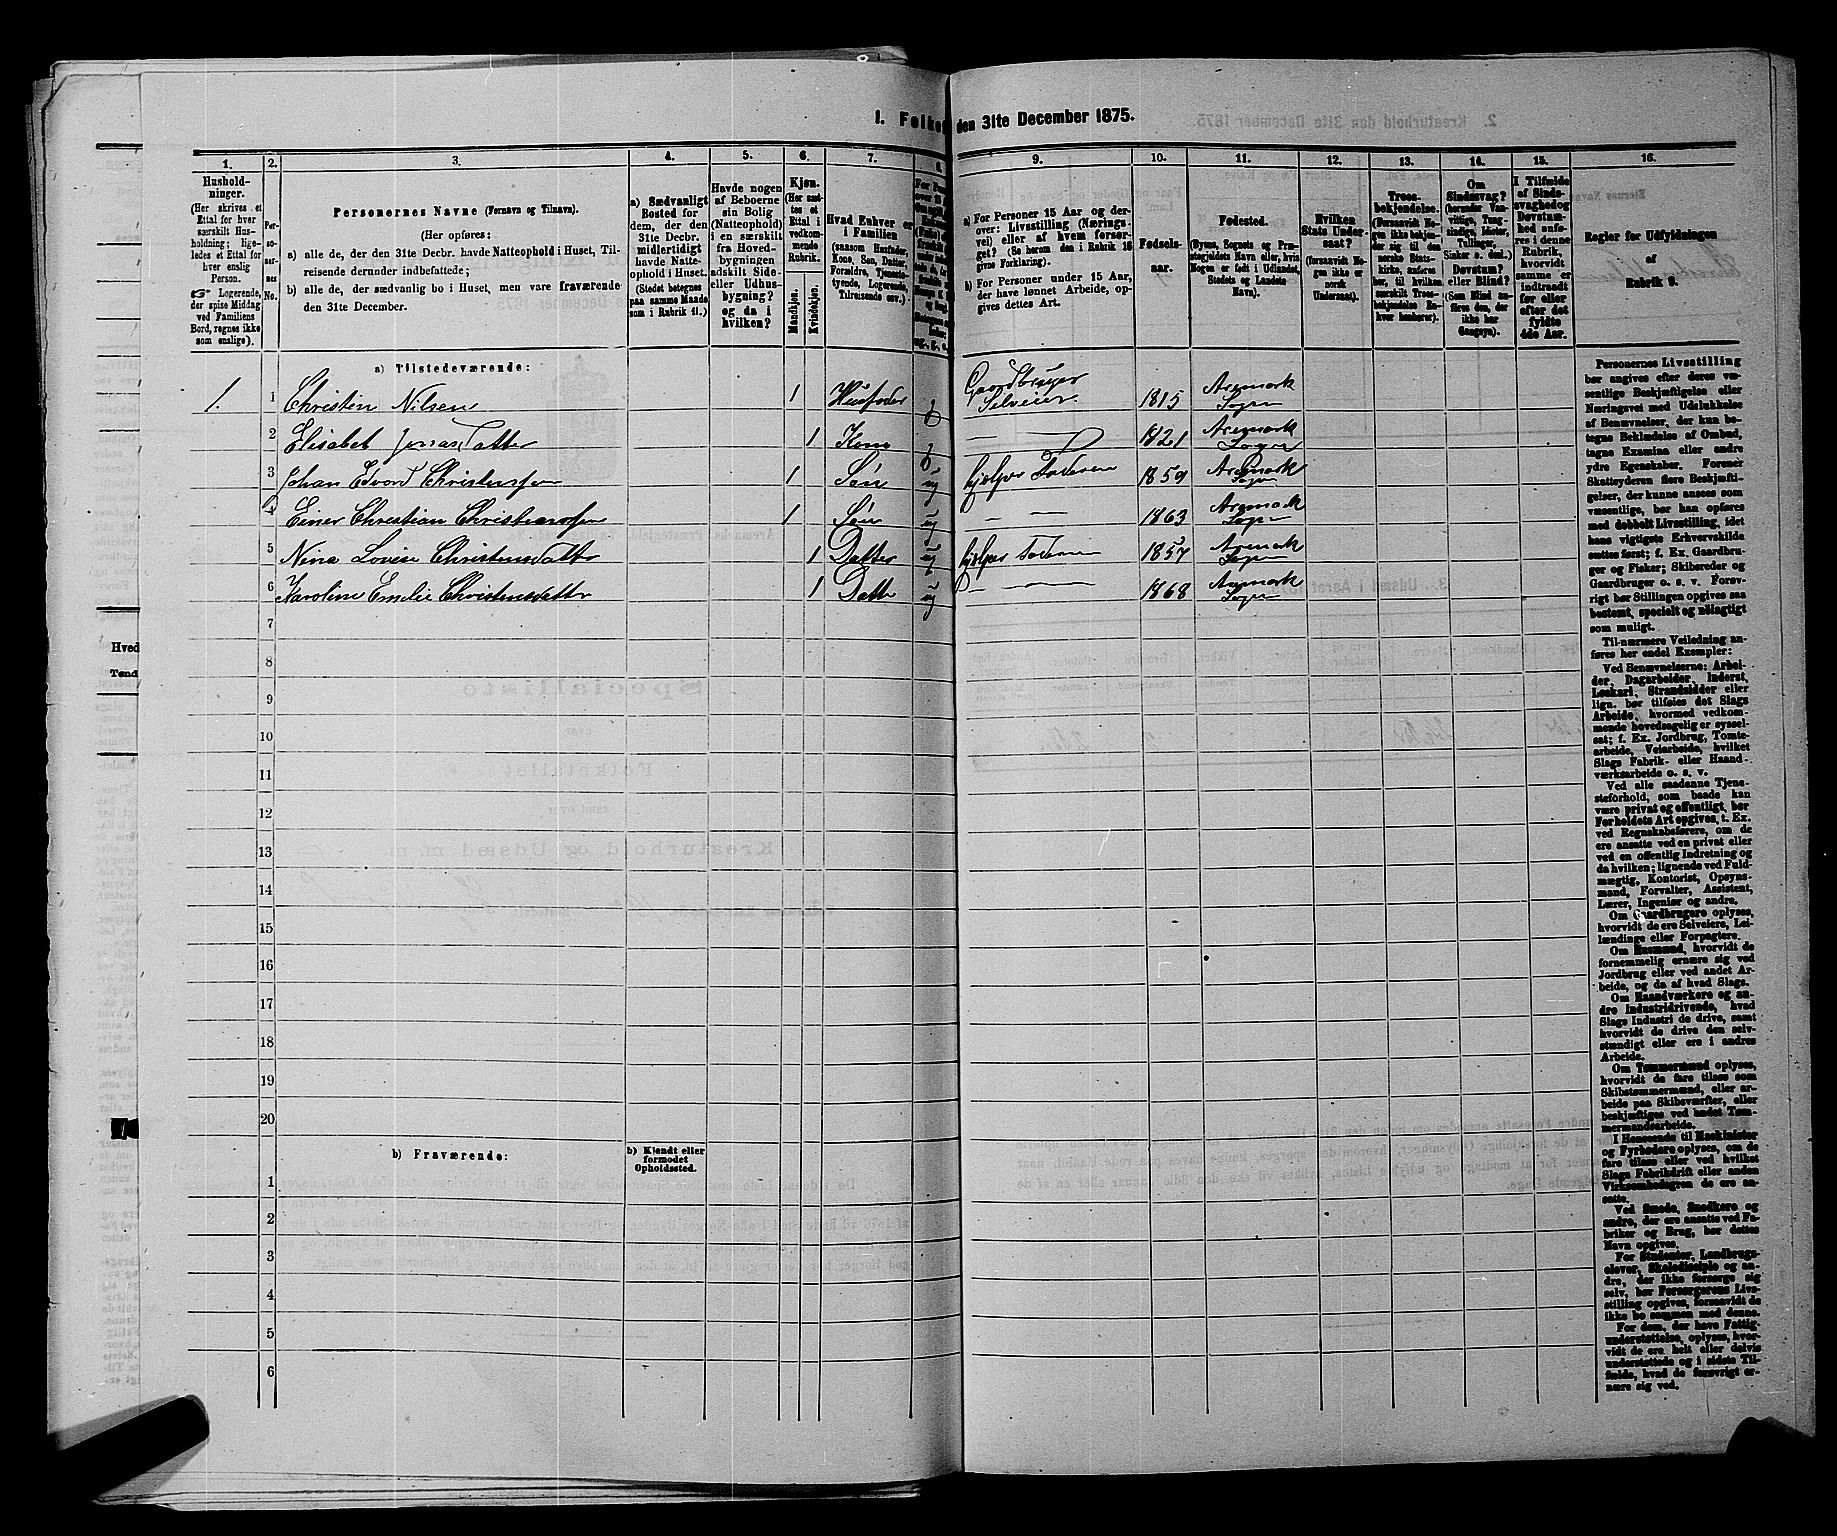 1. Folke den 31te December 1875.
1. 2. 3. 4. 5. 6. 7. 8. 9. 10. 11. 12. 13. 14. 15. 16.
Hushold-
ninger.
(Her skrives et
Ettal for hver
særskilt Hus-
holdning; lige-
ledes et Ettal for
hver enslig
Person.
☞ Logerende,
der spise Middag
ved Familiens
Bord, regnes ikke
som enslige).
Per-
so-
ner-
nes
No.
Personernes Navne (Fornavn og Tilnavn).
(Her opføres:
a) alle de, der den 31te Decbr. havde Natteophold i Huset, Til-
reisende derunder indbefattede;
b) alle de, der sædvanlig bo i Huset, men vare fraværende
den 31te December.
a) Sædvanligt
Bosted for
dem, der den
31te Decbr.
midlertidigt
havde Natte-
ophold i Huset.
(Stedet betegnes
paa samme Maade
som i Rubrik 11.)
Havde nogen
af Beboerne
sin Bolig
(Natteophold)
i en særskilt
fra Hoved-
bygningen
adskilt Side-
eller Udhus-
bygning?
og da i
hvilken?
Kjøn.
(Her sæt-
tes et
Ettal i
vedkom-
mende
Rubrik.
Mandkjøn.
Kvindekjøn.
Hvad Enhver er
i Familien
(saasom Husfader,
Kone, Søn, Datter,
Forældre, Tjeneste-
tyende, Logerende,
Tilreisende osv.)
a) For Personer 15 Aar og der-
over: Livsstilling (Nærings-
vei) eller af hvem forsør-
get? (Se herom den i Rubrik 16
givne Forklaring).
b) For Personer under 15 Aar,
der have lønnet Arbeide, op-
gives dettes Art.
Fødsels-
aar.
Fødested.
(Byens, Sognets og Præ-
stegjeldets Navn eller, hvis
Nogen er født i Udlandet,
Stedets og Landets
Navn).
Hvilken
Stats Under-
saat?
(forsaavidt No-
gen ikke er
norsk
Undersaat).
Troes-
bekjendelse.
(Forsaavidt No-
gen ikke bekjen-
der sig til den
norske Stats-
kirke, anføres
her, til hvilken
særskilt Troes-
bekjendelse En-
hver henhører).
Om
Sindssvag?
(herunder Van-
vittige, Tung-
sindige, Idioter,
Tullinger,
Sinker o. desl.)
Døvstum?
eller Blind?
(Som Blind an-
føres den, der
ikke har
Gangsyn).
I Tilfælde
af Sinds-
svaghed og
Døvstum-
hed anfø-
res i denne
Rubrik,
hvorvidt
samme er
indtraadt
før eller
efter det
fyldte
4de Aar.
Regler for Udfyldningen
af
Rubrik 9.
a) Tilstedeværende:
1. 1 Christen Nilsen 1 Husfader Gaardbruger Selveier 1815 Aremark Sogn
2 Elisabet Jonas Datter 1 Kone 1821 Aremark Sogn
3 Johan Edvard Christensen 1 Søn ug hjelper Faderen 1859 Aremark Sogn
4 Einer Christian Christiansen 1 Søn ug 1863 Aremark Sogn
5 Nina Lovise Christensdatter 1 Datter ug hjelper Faderen 1857 Aremark Sogn
6 Karoline Emelie Christensdatter 1 Datter ug 1868 Aremark Sogn
7
8
9
10
11
12
13
14
15
16
17
18
19
20
b) Fraværende:
b) Kjendt eller
formodet
Opholdssted.
1
2
3
4
5
6
Personernes Livsstilling
bør angives efter deres væ-
sentlige Beskjæftigelse eller
Næringsvei med Udelukkelse
af Benævnelser, der kun be-
tegne Beklædelse af Ombud,
tagne Examina eller andre
ydre Egenskaber. Forener
Skatteyderen flere Beskjæfti-
gelser, der kunne ansees som
væsentlige, bør han opføres
med dobbelt Livsstilling, idet
hans vigtigste Erhvervskilde
sættes først; f. Ex. Gaardbru-
ger og Fisker; Skibsreder og
Gaardbruger o. s. v. Forøv-
rigt bør Stillingen opgives saa
bestemt, specielt og nøiagtigt
som muligt.
Til nærmere Veiledning an-
føres her endel Exempler:
Ved Benævnelserne: Arbei-
der, Dagarbeider, Inderst,
Løskarl, Strandsidder eller
lign. bør tilføies det Slags
Arbeide, hvormed vedkom-
mende hovedsagelig er syssel-
sat; f. Ex. Jordbrug, Tomte-
arbeide, Veiarbeide, hvilket
Slags Fabrik- eller Haand-
værksarbeide o. s. v.
Ved alle saadanne Tjene-
steforhold, som baade kan
være privat og offentligt, bør
Forholdets Art opgives, t. Ex.
ved Regnskabsførere, om de
ere ansatte ved en privat eller
ved en offentlig Indretning og
da hvilken; lignende ved Fuld-
mægtig, Kontorist, Opsyns-
mand, Forvalter, Assistent,
Lærer, Ingeniør og andre.
Om Gaardbrugere oplyses,
hvorvidt de ere Selveiere, Lei-
lændinge eller Forpagtere.
Om Husmænd, hvorvidt de
fornemmelig ernære sig ved
Jordbrug eller ved andet Ar-
beide, og da af hvad Slags.
Om Haandværkere og an-
dre Industridrivende, hvad
Slags Industri de drive, samt
hvorvidt de drive den selv-
stændigt eller ere i andres
Arbeide.
Om Tømmermænd oplyses,
hvorvidt de fare tilsøs som
Skibstømmermænd, eller ar-
beide paa Skibsværfter, eller
beskjæftiges ved andet Tøm-
mermandsarbeide.
I Henseende til Maskinister
og Fyrbødere oplyses, om de
fare tilsøs eller ved hvilket
Slags Fabrikdrift eller anden
Virksomhedsgren de ere an-
satte.
Ved Smede, Snedkere og
andre, der ere ansatte ved Fa-
briker og Brug, bør dettes
Navn opgives.
For Studenter, Landbrugs-
elever, Skoledisciple og an-
dre, der ikke forsørge sig
selv, bør Forsørgerens Livs-
stilling opgives, forsaavidt de
ikke bo sammen med denne.
For dem, der have Fattig-
understøttelse, oplyses, hvor-
vidt de ere helt eller delvis
understøttede og i sidste Til-
fælde, hvad de forøvrigt er-
nære sig ved.
Hved
Tønd